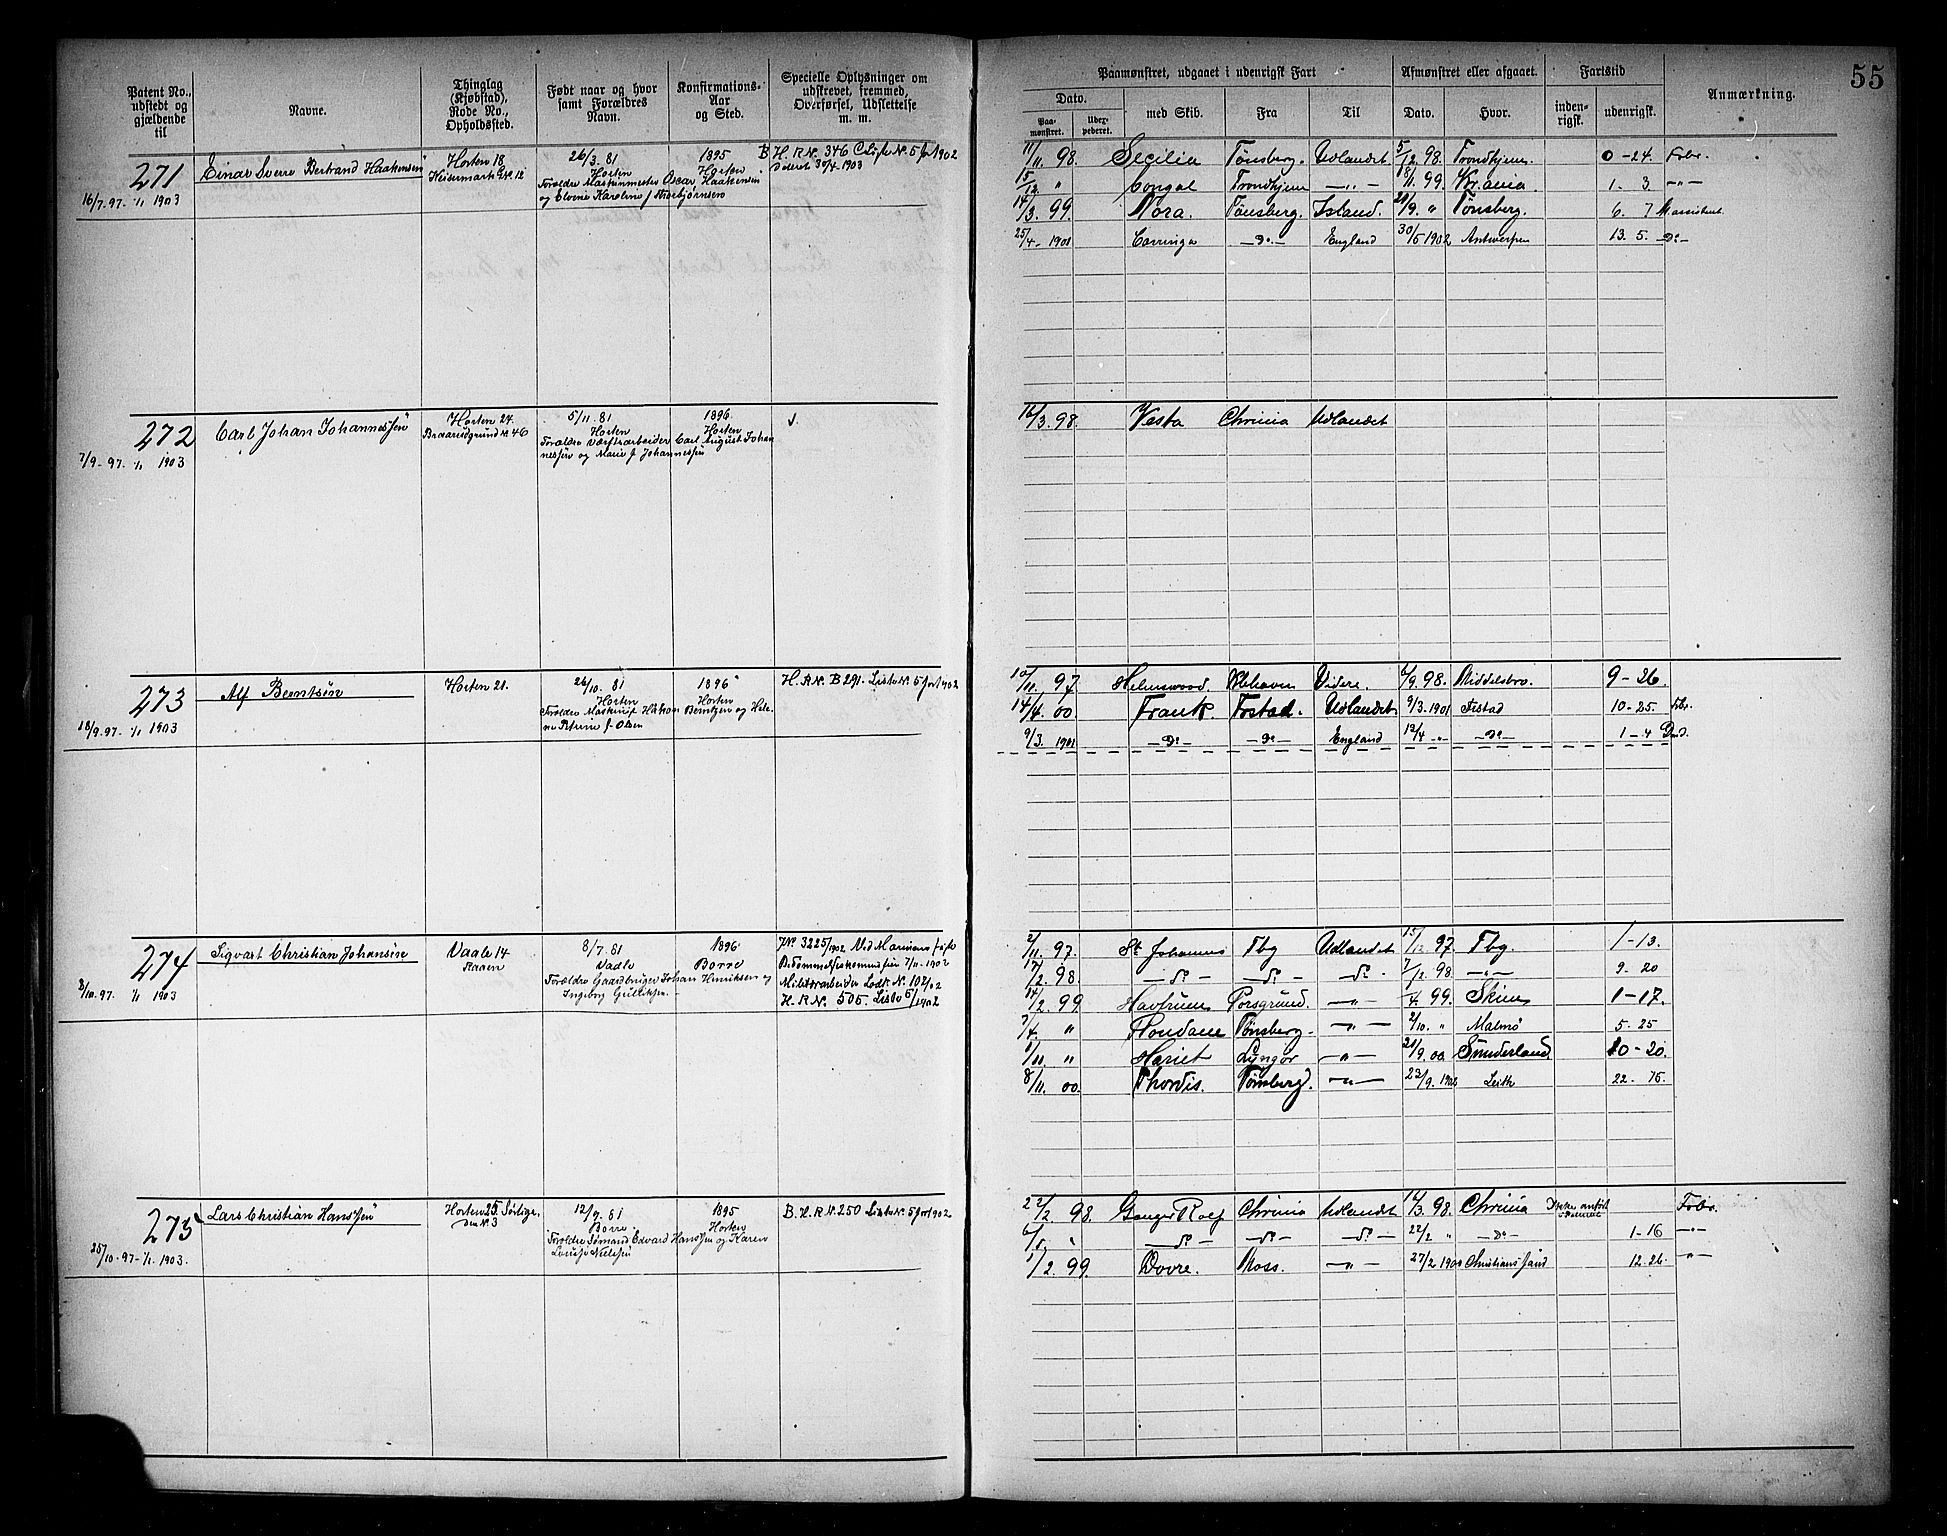 55
Patent No., udstedt og gjældende til
Navne.
Thinglag (Kjøbstad), Rode No., Opholdssted.
Født naar og hvor samt Forældres Navn.
Konfirmations-Aar og Sted.
Specielle Oplysninger om udskrevet, fremmed, Overførsel, Udslettelse m. m.
Paamønstret, udgaaet i udenrigsk Fart
Afmønstret eller afgaaet.
Fartstid
Anmærkning.
Dato.
Paa-mønstret.
med Skib.
Fra
Til
Dato.
Hvor.
inden-rigsk.
udenrigsk.
271
16/7.97. 1/1 1903
Einar Sverre Bertrand Haakensen
Horten 18
26/3. 81
Horten
Forældre Maskinmester Oscar Haakensen
og Elvine Karoline f
1895
Horten
B H. R N. 346 Liste N. 5 for 1902
30/4. 1903
11/11. 98. Secilia Tønsberg. Udlandet 5/12. 98. Trondhjem 0-24. Forbr.
15/12. " Congal Trondhjem —"— 18/11. 99. Kr.ania 1. 3. —"—
14/3. 99. Nora. Tønsberg. Island. 20/9. " Tønsberg. 6. 7 M assistent.
25/4 - 1901 Corringa —Do.— England 30/5 1902 Antwerpen 13. 5. Do—
272
7/9-97. 1/1 1903
Carl Johan Johannessen
Horten 24.
Braarudgrund N. 46
5/11. 81
Horten
Forældre Værftsarbeider Carl August Johan
nessen og Marie f Johannessen
1896.
Horten
16/3. 98. Vesta Chrinia Udlandet
273
18/9.97. 1/1 1903
Alf Berntsen
Horten 21.
26/10. 81
Horten
Forældre Maskinist Haakon Berntzen og Hele-
ne Petrine f. Olsen
1896
Horten
H. R N. B 291. Liste N. 5 for 1902
10/11. 97 Helmswood. Videre. 6/9. 98. Middelsbro. 9-26.
14/4. 00 Frank. Frstad. Udlandet 9/3. 1901 Frstad 10-25. Fbr.
9/3. 1901 —Do— —Do— England 12/4 " —Do— 1-4 Do.
274
8/10.97. 1/1 1903
Sigvart Christian Johansen
Vaale 14
Raaen
8/7. 81
Vaale
Forældre Gaardbruger Johan Henriksen og
Ingeborg Gulliksen
1896
Borre
J.No. 3225/1902 Ved Marinens
7/11-1902
H. R N. 505.
2/11. 97. St Johannes Tbg Udlandet 15/12 97. Tbg. 1-13.
17/2. 98 —Do.— —Do.— —Do. 7/12. 98. —"— 9. 20
14/2. 99 Havfruen Porsgrund. —"— /4. 99. Skien 1-17.
7/4. " Rondane Tønsberg. —"— 2/10. " Malmø 5. 25
1/11 " Hariet Lyngør —"— 21/9. 00. Sunderland 10-20.
8/11. 00. Thordis. Tønsberg. —"— 23/9. 1902 Leith 22. 15.
275
25/10-97-1/1.1903.
Lars Christian Hanssen
Horten 25. Sørlige
12/9. 81
Borre
Forældre Sømand Edvard Hanssen og Karen
Lovise Nielsen
1895
Horten
B. H. R N. 250 Liste N. 5 for 1902
22/2. 98. Ganger Rolf Chrinia Udlandet 14/3. 98. Chrinia Ikke anført Forbr.
6/5. " —Do— —Do— —Do— 22/2 " —Do— 1-16 —"—
1/2. 99. Dovre. Moss. —"— 27/2 1900 Christianssand 12. 26. —"—